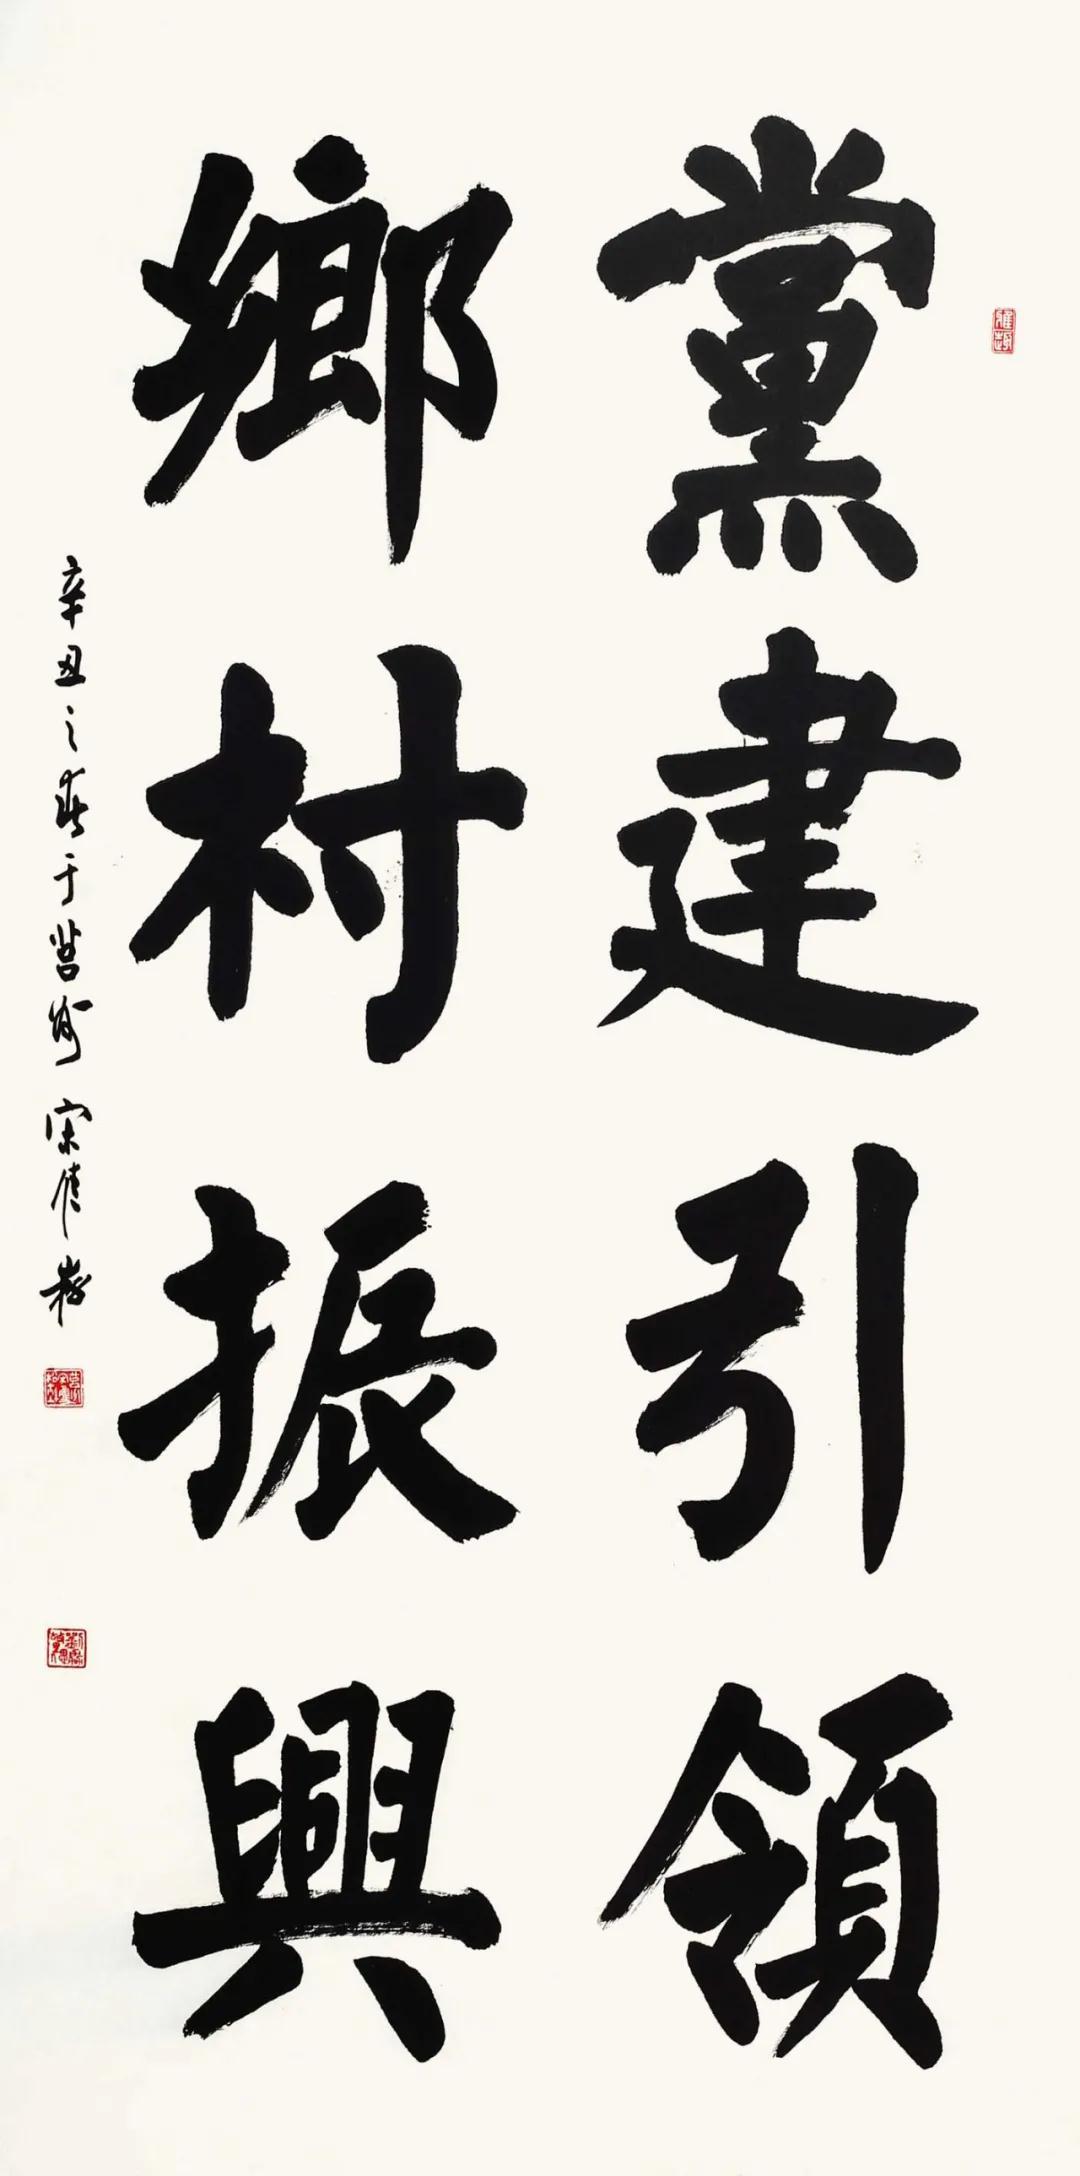 黨建引領
鄉村振興
辛丑之春于莒州 宋